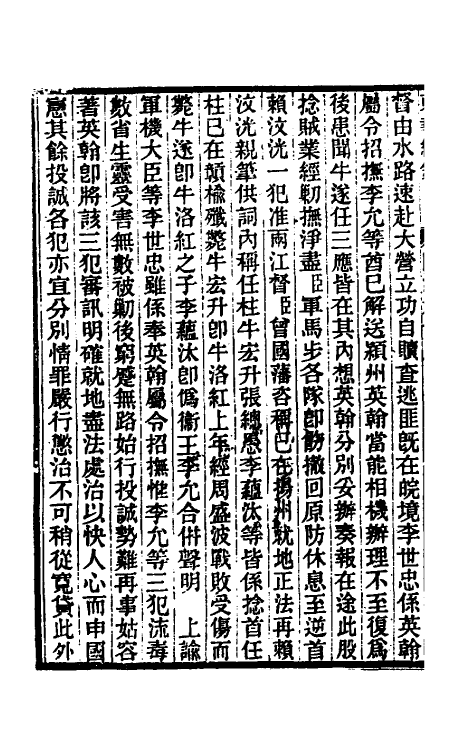 督由水路速赴大營立功自贖查逃匪旣在皖境李世忠係英翰
屬令招撫李允等酋已解送潁州英翰當能相機辦理不至復爲
後患聞牛遂任三應皆在其內想英翰分別妥辦奏報在途此股
捻賊業經勦撫淨盡臣軍馬步各隊卽飭撤回原防休息至逆首
賴汶洸一犯准兩江督臣曾國藩咨稱已在揚州就地正法再賴
汶洸親筆供詞內稱任柱牛宏升張總愚李蘊汰等皆係捻首任
柱已在贛榆殲斃牛宏升卽牛洛紅上年經周盛波戰敗受傷而
斃牛遂卽牛洛紅之子李蘊汰卽僞衞王李允合併聲明　上諭
軍機大臣等李世忠雖係奉英翰屬令招撫惟李允等三犯流毒
數省生靈受害無數被勦後窮蹙無路始行投誠勢難再事姑容
著英翰卽將該三犯審訊明確就地盡法處治以快人心而申國
憲其餘投誠各犯亦宜分別情罪嚴行懲治不可稍從寬貸此外